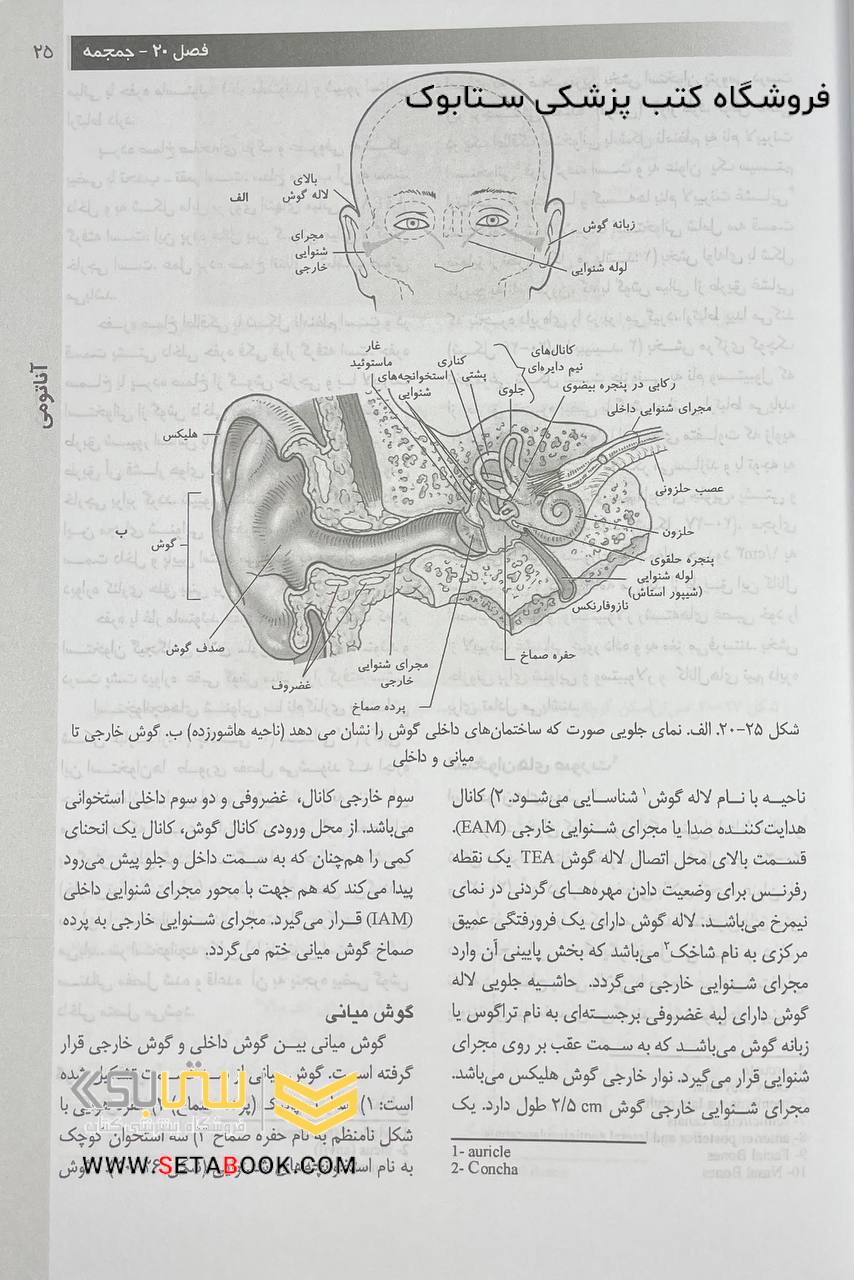 فصل ۲۰ - جمجمه
۲۵
فروشگاه کتب پزشکی ستابوک
آناتومی
الف
بالای
لاله گوش
مجرای
شنوایی
خارجی
زبانه گوش
لوله شنوایی
غار
ماستوئید
استخوانچه‌های
شنوایی
کناری
پشتی
جلوی
کانال‌های
نیم دایره‌ای
رکابی در پنجره بیضوی
مجرای شنوایی داخلی
هلیکس
عصب حلزونی
ب
گوش
حلزون
پنجره حلقوی
لوله شنوایی
(شیپور استاش)
نازوفارنکس
صدف گوش
غضروف
مجرای شنوایی
خارجی
پرده صماخ
حفره صماخ
شکل ۲۵-۲۰. الف. نمای جلویی صورت که ساختمان‌های داخلی گوش را نشان می دهد (ناحیه هاشورزده) ب. گوش خارجی تا
میانی و داخلی
ناحیه با نام لاله گوش۱ شناسایی می‌شود. ۲) کانال
هدایت‌کننده صدا یا مجرای شنوایی خارجی (EAM).
قسمت بالای محل اتصال لاله گوش TEA یک نقطه
رفرنس برای وضعیت دادن مهره‌های گردنی در نمای
نیمرخ می‌باشد. لاله گوش دارای یک فرورفتگی عمیق
مرکزی به نام شاخک۲ می‌باشد که بخش پایینی آن وارد
مجرای شنوایی خارجی می‌گردد. حاشیه جلویی لاله
گوش دارای لبه غضروفی برجسته‌ای به نام تراگوس یا
زبانه گوش می‌باشد که به سمت عقب بر روی مجرای
شنوایی قرار می‌گیرد. نوار خارجی گوش هلیکس می‌باشد.
مجرای شنوایی خارجی گوش ۲/۵ cm طول دارد. یک
1- auricle
2- Concha
سوم خارجی کانال، غضروفی و دو سوم داخلی استخوانی
می‌باشد. از محل ورودی کانال گوش، کانال یک انحنای
کمی را هم‌چنان که به سمت داخل و جلو پیش می‌رود
پیدا می‌کند که هم جهت با محور مجرای شنوایی داخلی
(IAM) قرار می‌گیرد. مجرای شنوایی خارجی به پرده
صماخ گوش میانی ختم می‌گردد.
گوش میانی
گوش میانی بین گوش داخلی و گوش خارجی قرار
گرفته است. گوش میانی از سه قسمت تشکیل شده
است: ۱) (پرده صماخ) ۲) حفره هوایی با
شکل نامنظم به نام حفره صماخ ۳) سه استخوان کوچک
به نام استخوانچه‌های شنوایی (شکل گوش
ستابوک
فروشگاه اینترنتی کتاب
WWW.SETABOOK.COM